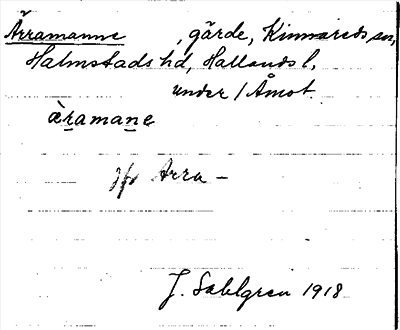 Ärramanne , gärde, Kinnareds sn,
Halmstads hd, Hallands l.
under 1 Åmot.
àramane
jfr Arra –
J. Sahlgren 1918